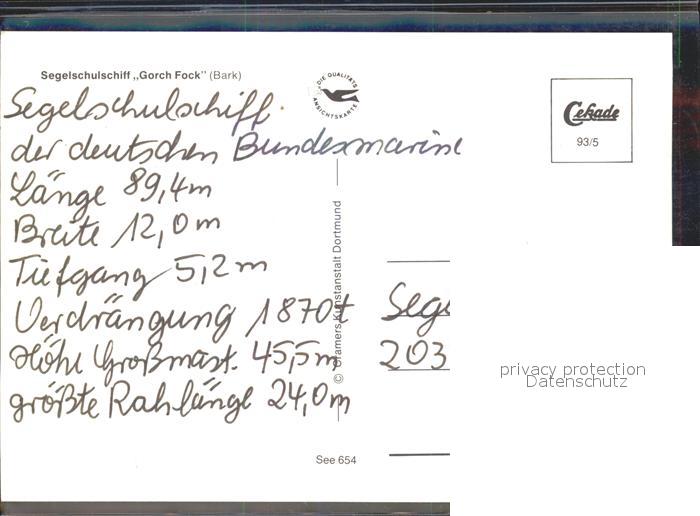 Segelschulschiff „Gorch Fock" (Bark)
Segelschulschiff
der deutschen Bundesmarine
Länge 89,4m
Breite 12,0m
Tiefgang 5,2m
Verdrängung 1870t
Höhe Großmast. 45,5m
größte Rahlänge 24,0m
DIE QUALITÄTS
ANSICHTSKARTE
© Cramers Kunstanstalt Dortmund
See 654
Cekade
93/5
Sege
203
privacy protection
Datenschutz